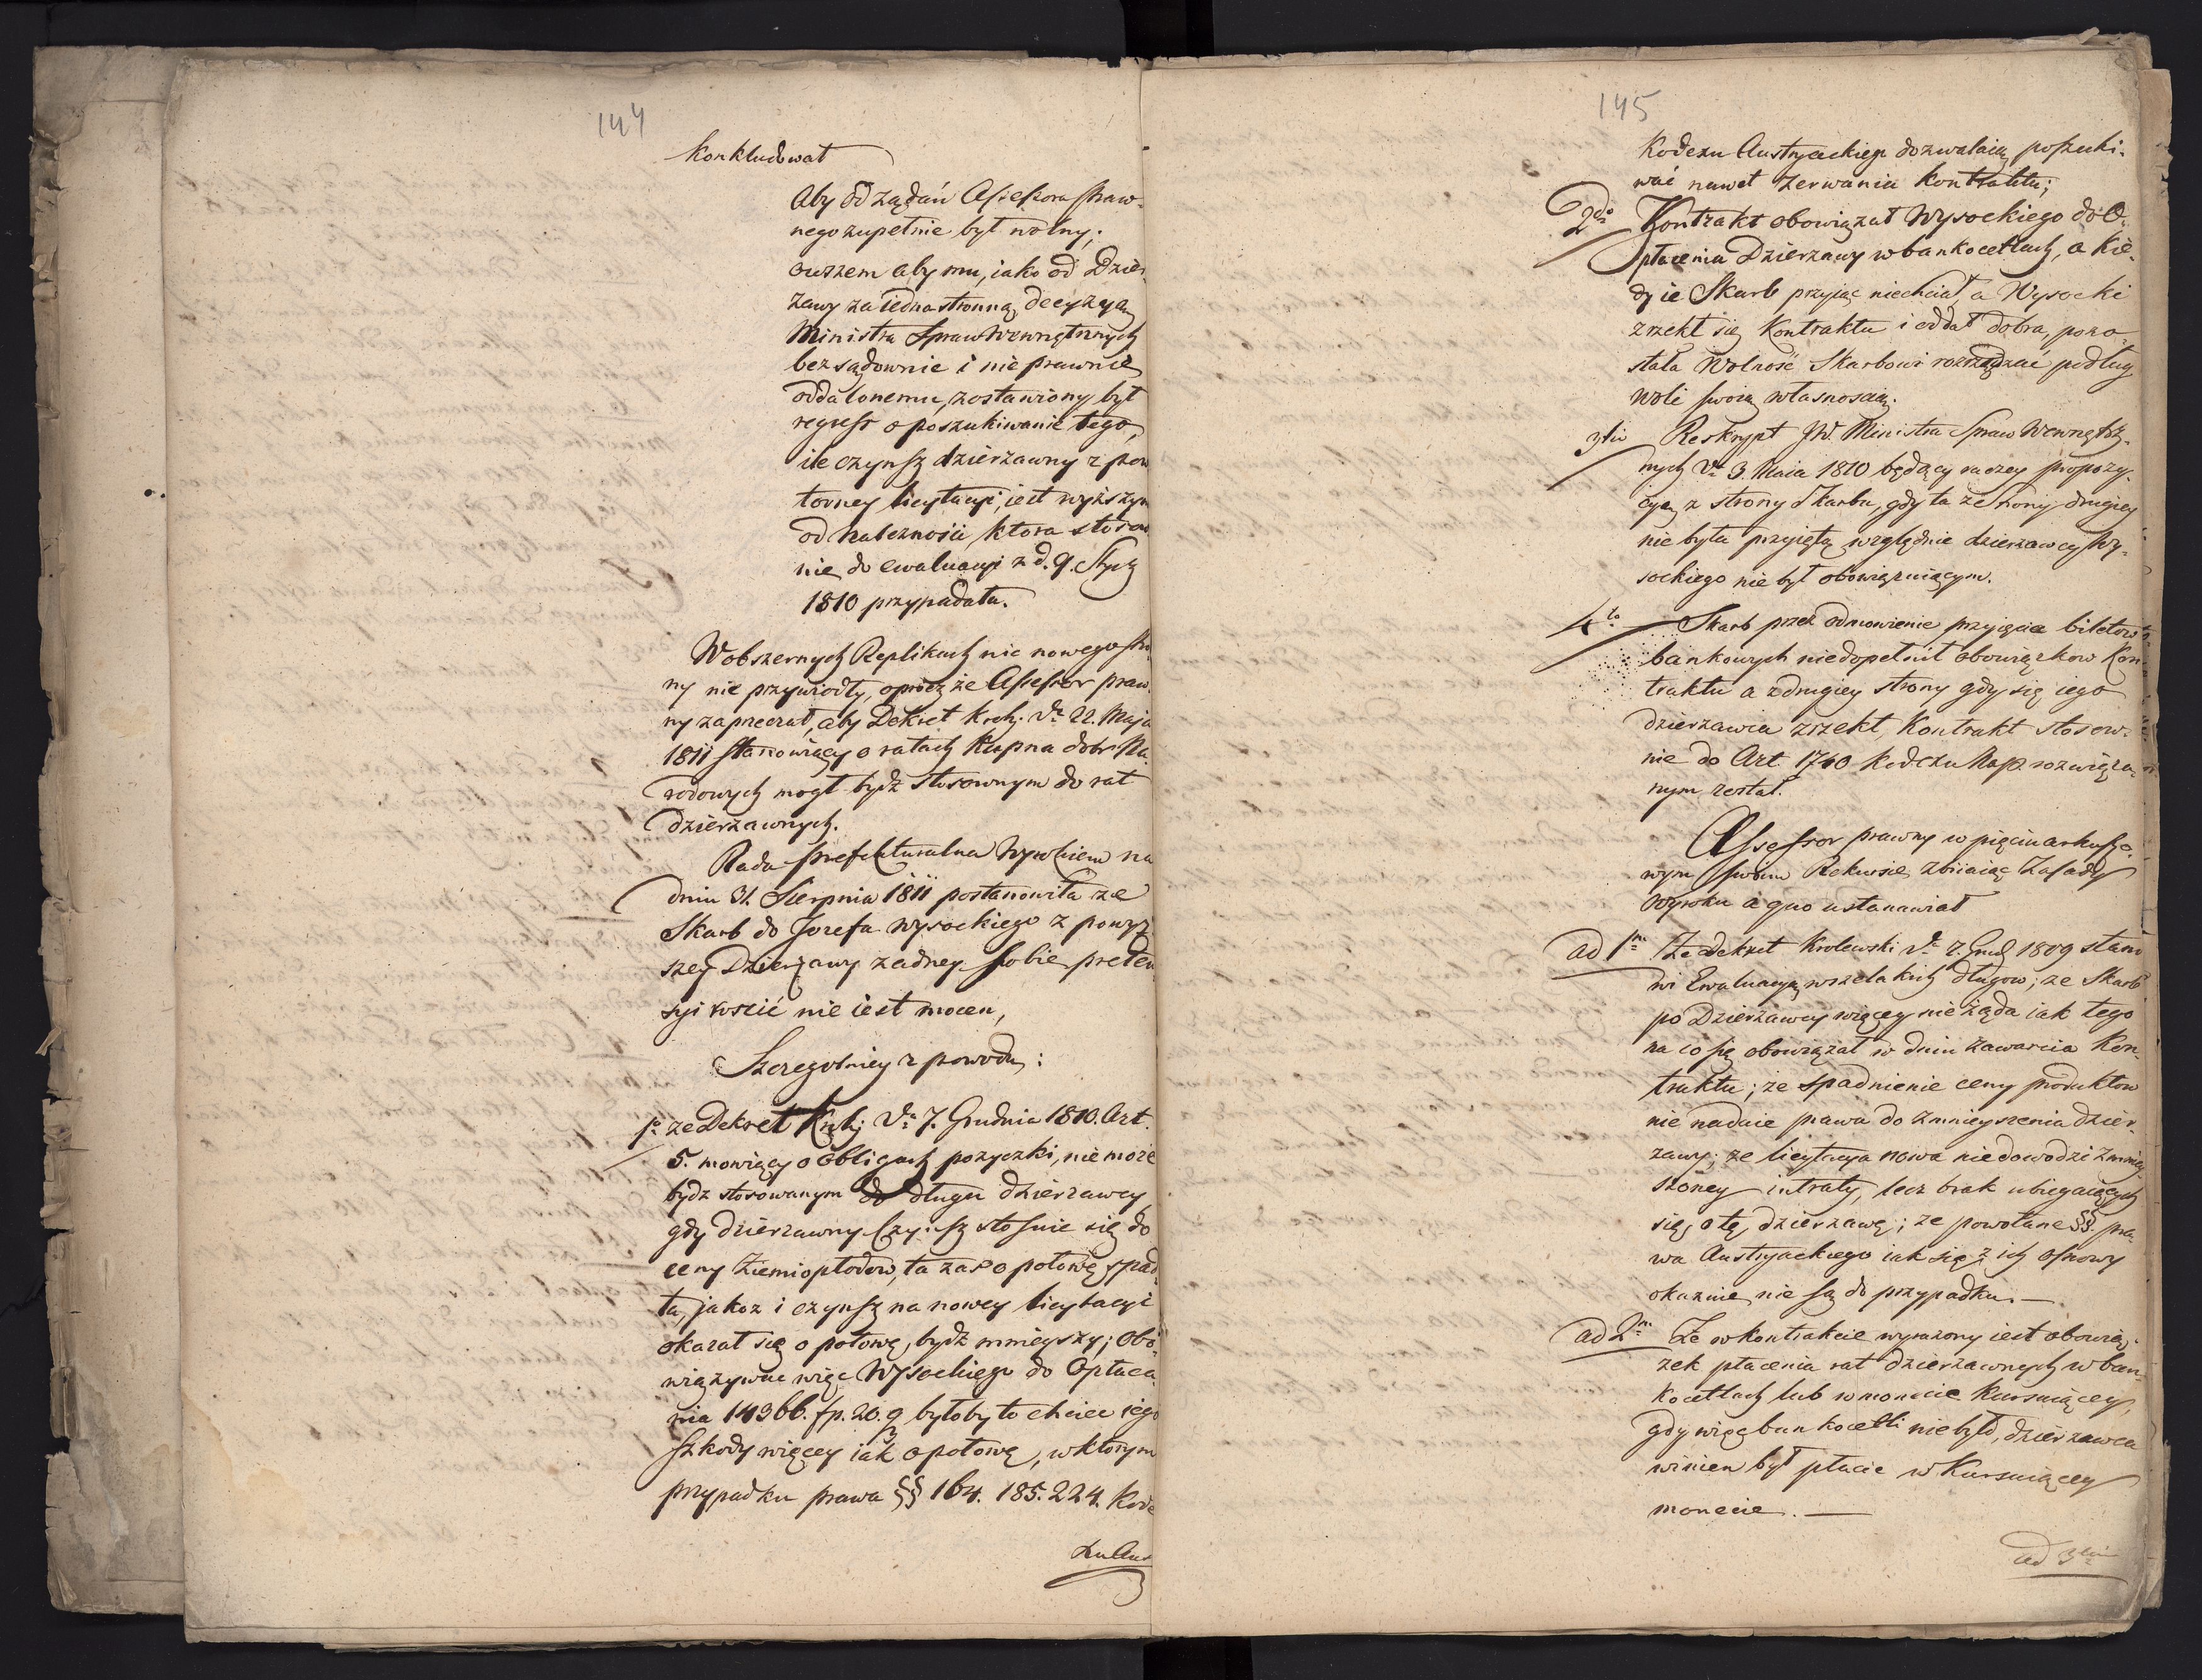 144
konkludował
Aby od żądań Assessora praw-
nego zupełnie był wolny;
owszem aby mu, iako od Dzier
żawy za iednostronną decyzyą
Ministra Spraw Wewnętrznych
bezsądownie i nieprawnie
oddalonemu, zostawiony był
regress o poszukiwanie tego,
ile czynsz dzierżawny z pow
torney licytacyi, iest wyższym
od należności ktora stosow
nie do ewaluacyi z d. 9. Stycz
1810 przypadała.
W obszernych Replikach nic nowego stro
ny nie przywiodły, oprócz że Assessor praw
ny zaprzeczał, aby Dekret Krch. d. 22. Maja
1811 stanowiący o ratach kupna dobr Na
rodowych mogł bydź stosownym do rat
dzierżawnych.
Rada Prefekturalna Wyrokiem na
dniu 31. Sierpnia 1811 postanowiła że
Skarb do Jozefa Wysockiego z powyż
szey Dzierżawy żadney sobie preten
syi rościć nie iest mocen,
Szczegolniey z powodu:
1o że Dekret Krch. d. 7. Grudnia 1810. Art.
5. mowiący o obligach pożyczki, nie może
bydz stosowanym do długu dzierżawcy
gdy dzierżawny Czynsz stosuie się do
ceny ziemiopłodow, ta zaś o połowę spad
ła, jakoż i czynsz na nowey licytacyi
okazał się o połowę bydź mnieyszy; Obo
wiązywac więc Wysockiego do Opłaca
nia 14366. fp. 20. g byłoby to chcieć iego
szkody więcey iak o połowę, w ktorym
przypadku prawa §§ 164. 185. 224. Kode
xu Aus
145
Kodexu Austryackiego dozwalaią poszuki-
wać nawet zerwania kontraktu;
2do Kontrakt obowiązał Wysockiego do O-
płacenia Dzierżawy w bankocetlach, a kie-
dy ie Skarb przyjąc niechciał, a Wysocki
zrzekł się Kontraktu i oddał dobra, pozo-
stała Wolność Skarbowi rozrządzać podług
woli swoią własnoscią.
3tio Reskrypt JW. Ministra Spraw Wewnętrz-
nych d. 3. Maia 1810 będący raczey propozy-
cyą z strony Skarbu, gdy ta ze strony drugiey
nie była przyiętą względnie dzierżawcy Wy-
sockiego nie był obowięzuiącym.
4to Skarb przez odmowienie przyięcia biletow
bankowych niedopełnił obowiązkow Kon
traktu a z drugiey strony gdy się iego
dzierżawca zrzekł, Kontrakt stosow-
nie do Art. 1760 Kodexu Nap. rozwiąza-
nym został.
Assessor prawny w pięcioarkuszo-
wym swoim Rekursie zbiiaiąc Zasady
Wyroku a quo ustanawiał
ad 1m Że dekret Krolewski d. 7. Grud 1809 stano
wi Ewaluacyą wszelakich długow; ze Skarb
po Dzierżawcy więcey nie żąda iak tego
na co się obowiązał w dniu zawarcia Kon-
traktu; że spadnienie ceny produktow
nie nadaie prawa do zmnieyszenia dzier-
zawy; ze licytacya nowa nie dowodzi zmniey
szoney intraty, lecz brak ubiegaiących
się o tę dzierżawę; ze powołane §§. pra-
wa Austryackiego iak się z ich osnowy
okazuie nie są do przypadku. —
ad 2m Że w kontrakcie wyrażony iest obowią-
zek płacenia rat dzierżawnych w ban-
kocetlach lub w monecie Kursuiącey,
gdy więc bankocetli niebyło, dzierżawca
winien był płacić w Kursuiącey
monecie. —
ad 3tium